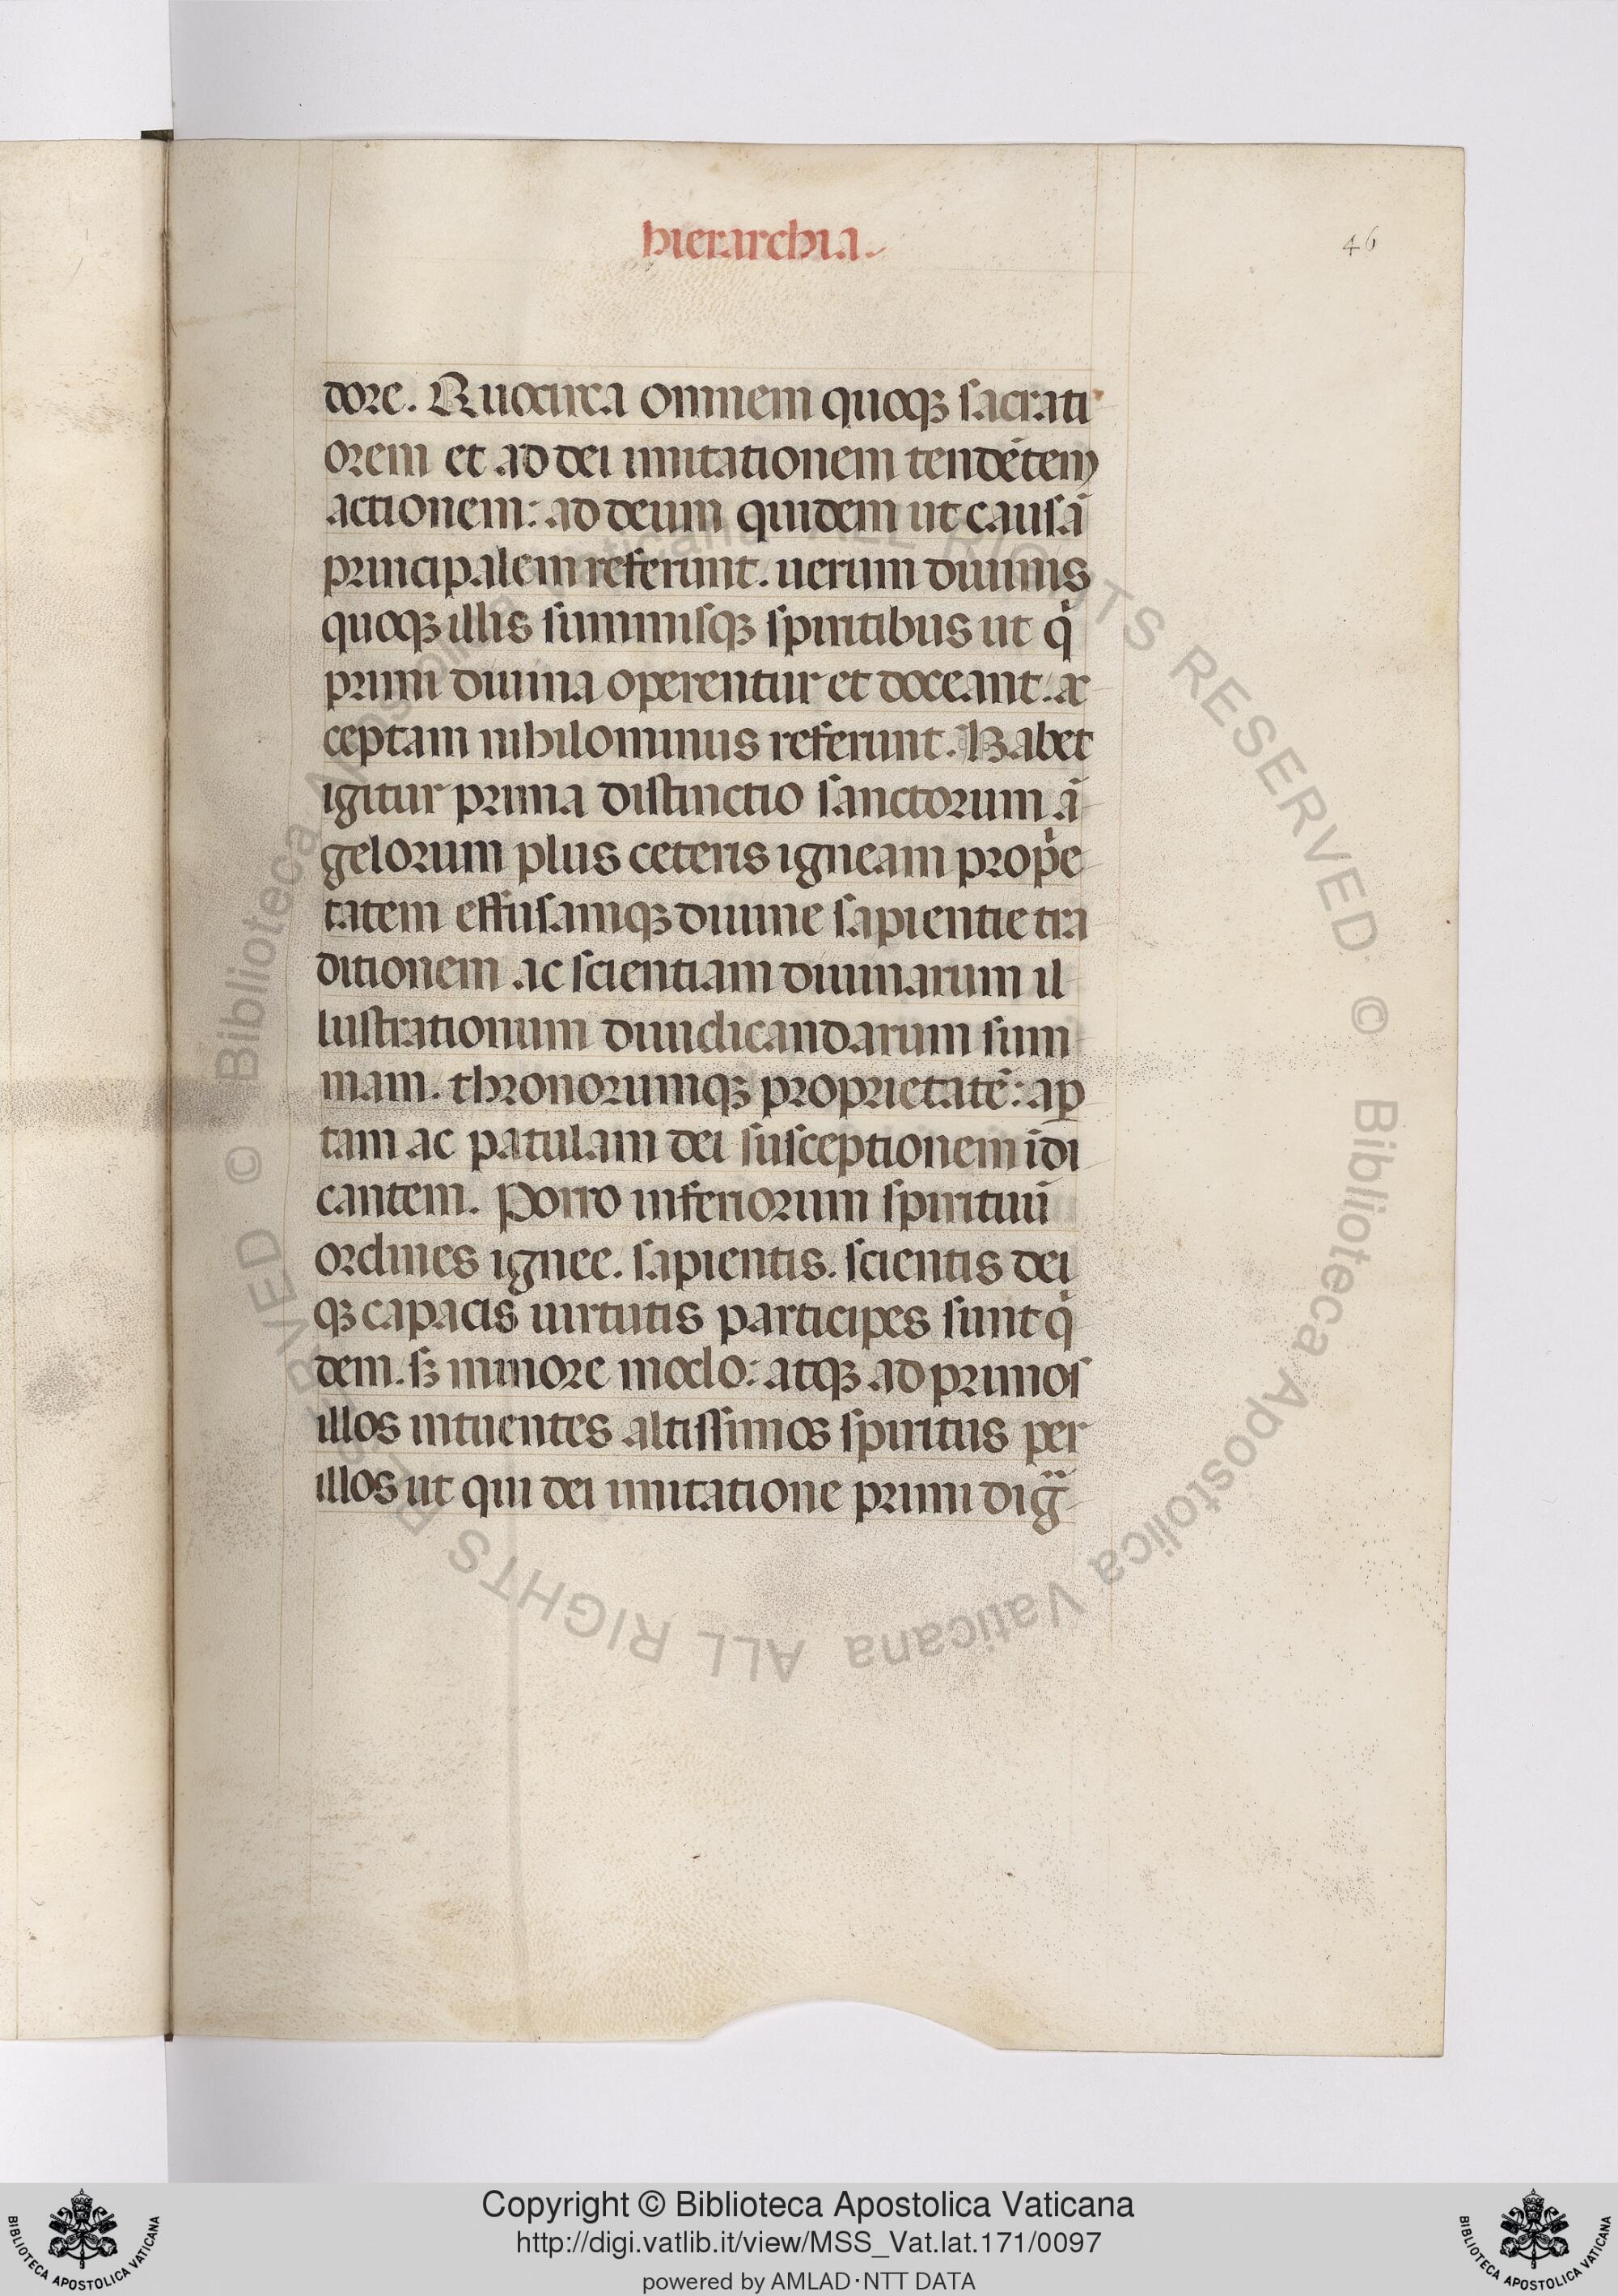 hierarchia.
46
dore. Quocirca omnem quoqꝫ sacrati
orem et ad dei imitationem tendētem
actionem: ad deum quidem ut causā
principalem referunt. uerum diuinis
quoqꝫ illis summisqꝫ spiritibus ut qͥ
primi diuina operentur et doceant. ac
ceptam nihilominus referunt. Habet
igitur prima distinctio sanctorum ā
gelorum plus ceteris igneam propͥe
tatem effusamqꝫ diuine sapientie tra
ditionem ac scientiam diuinarum il
lustrationum diiudicandarum sum
mam. thronorumqꝫ proprietatē: aꝑ
tam ac patulam dei susceptionem īdi
cantem. Porro inferiorum spirituū
ordines ignee. sapientis. scientis dei
qꝫ capacis uirtutis participes sunt qͥ
dem. sꝫ minore modo: atqꝫ ad primos
illos intuentes altissimos spiritus per
illos ut qui dei imitatione primi dig̃
© Biblioteca Apostolica Vaticana ALL RIGHTS RESERVED
© Biblioteca Apostolica Vaticana ALL RIGHTS RESERVED
Copyright © Biblioteca Apostolica Vaticana
http://digi.vatlib.it/view/MSS_Vat.lat.171/0097
powered by AMLAD·NTT DATA
BIBLIOTECA APOSTOLICA VATICANA
BIBLIOTECA APOSTOLICA VATICANA